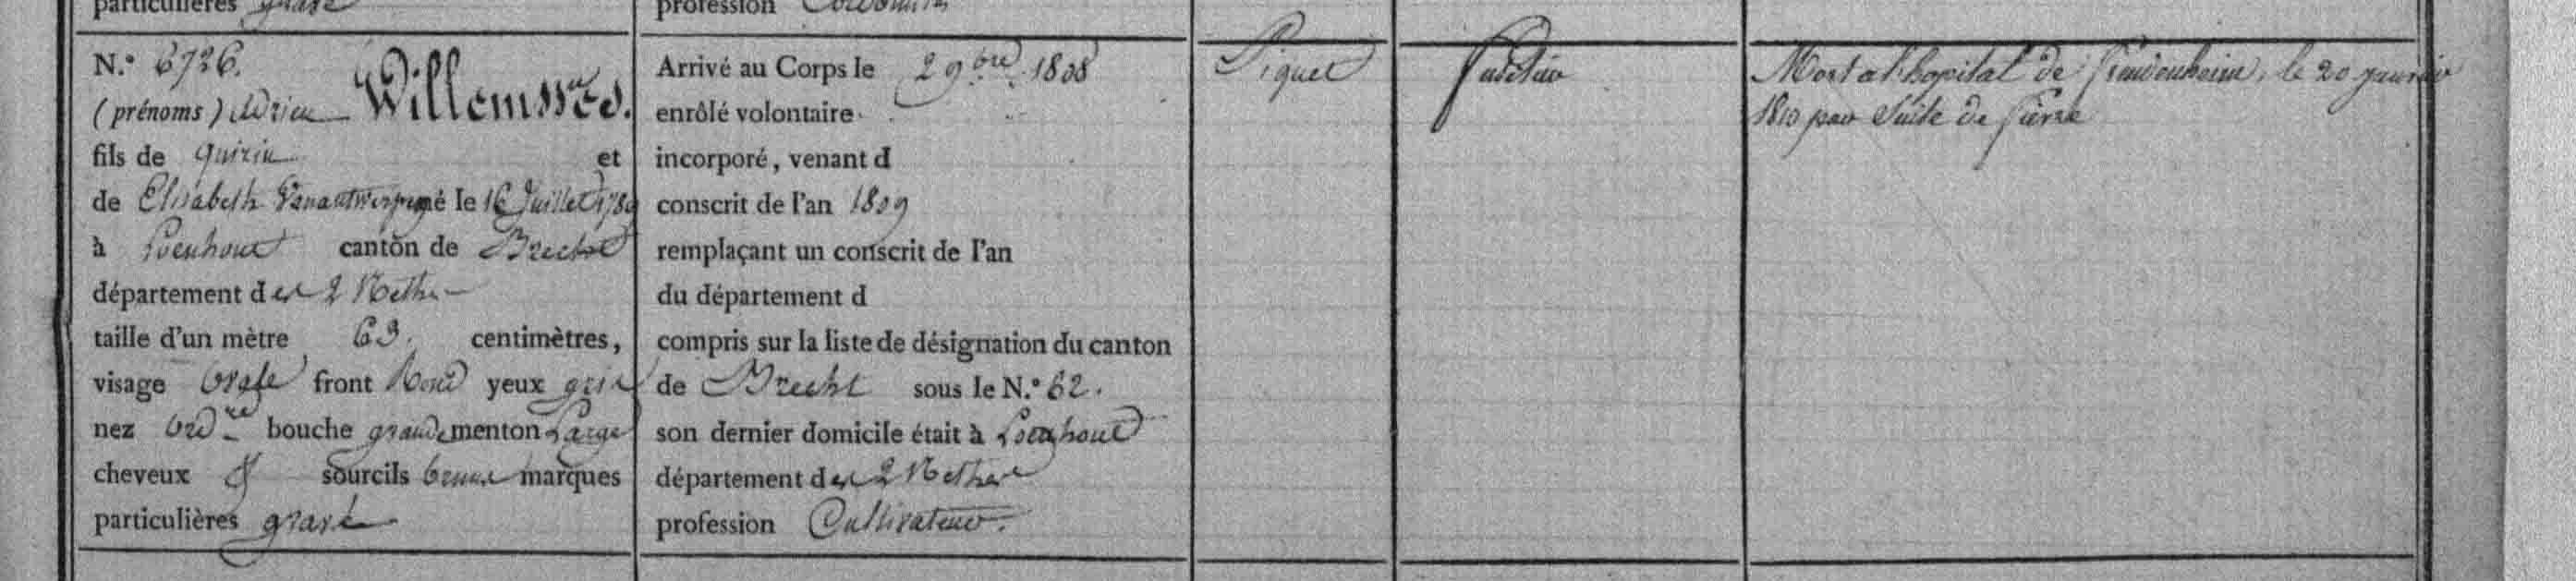 particulières gravé
profession Cordonnier
N.° 6726. Willemssens.
(prénoms) Adrien
fils de Quirin et
de Elisabeth Vanantwerpen né le 16 Juillet 1789
à Loenhout canton de Brecht
département des 2 Nethes
taille d'un mètre 63. centimètres,
visage Ovale front Rond yeux gris
nez Ord.re bouche grande menton Large
cheveux & sourcils bruns marques
particulières gravé
Arrivé au Corps le 2 9.bre 1808
enrôlé volontaire
incorporé, venant d
conscrit de l'an 1809
remplaçant un conscrit de l'an
du département d
compris sur la liste de désignation du canton
de Brecht sous le N.° 62.
son dernier domicile était à Loenhout
département des 2 Nethes
profession Cultivateur.
Piquet
Fusilier
Mort a l'hopital de le 20 janvier
1810 par Suite de fièvre